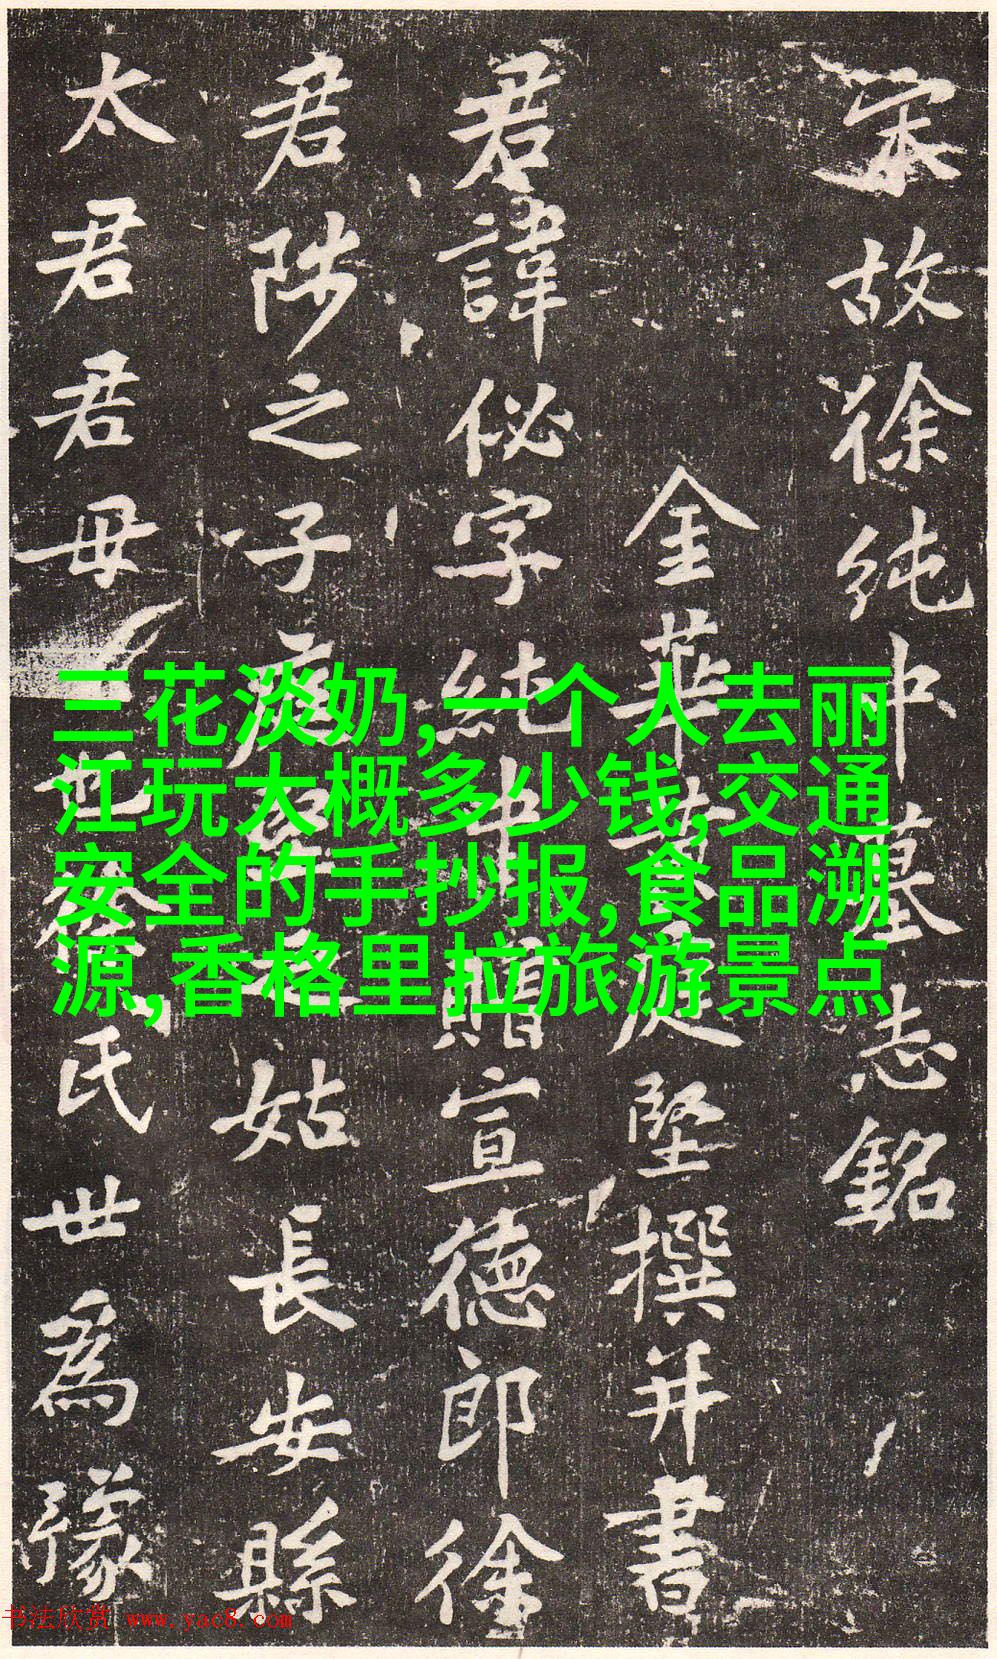 宋故徐純中墓志銘
金華黃庭堅撰并書
君諱佖字純中贈宣德郎徐
君陟之子庭堅之姑長安縣
太君君母也氏世爲豫
三花淡奶,一个人去丽
江玩大概多少钱,交通
安全的手抄报,食品溯
源,香格里拉旅游景点
书法欣赏 www.yac8.com